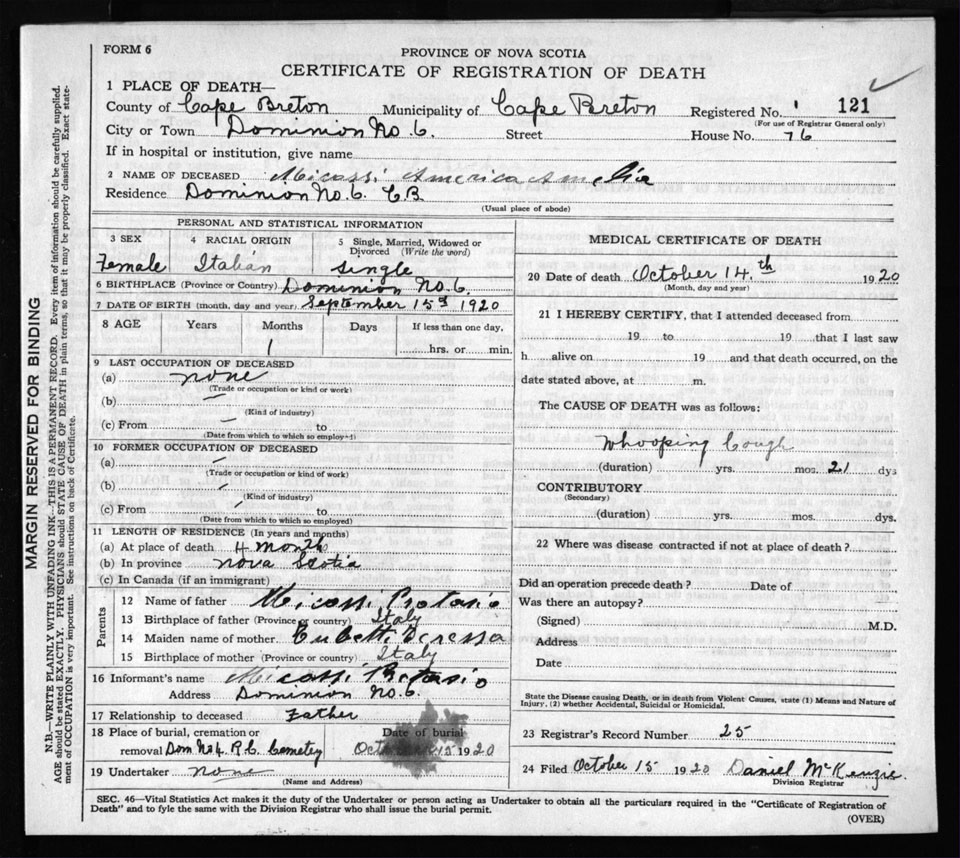 FORM 6
PROVINCE OF NOVA SCOTIA
CERTIFICATE OF REGISTRATION OF DEATH
1 PLACE OF DEATH—
County of Cape Breton Municipality of Cape Breton Registered No. 121
(For use of Registrar General only)
City or Town Dominion No. 6. Street House No. 76
If in hospital or institution, give name
2 NAME OF DECEASED Micassi America Amelia
Residence Dominion No. 6. C.B.
(Usual place of abode)
PERSONAL AND STATISTICAL INFORMATION
3 SEX 4 RACIAL ORIGIN 5 Single, Married, Widowed or Divorced (Write the word)
Female Italian Single
6 BIRTHPLACE (Province or Country) Dominion No. 6.
7 DATE OF BIRTH (month, day and year) September 15 1920
8 AGE Years Months Days If less than one day,
1 hrs. or min.
9 LAST OCCUPATION OF DECEASED
(a) none
(Trade or occupation or kind or work)
(b) —
(Kind of industry)
(c) From — to
(Date from which to which so employed)
10 FORMER OCCUPATION OF DECEASED
(a) —
(Trade or occupation or kind of work)
(b) —
(Kind of industry)
(c) From — to
(Date from which to which so employed)
11 LENGTH OF RESIDENCE (In years and months)
(a) At place of death 4 months
(b) In province Nova Scotia
(c) In Canada (if an immigrant)
Parents
12 Name of father Micassi Protasio
13 Birthplace of father (Province or country) Italy
14 Maiden name of mother
15 Birthplace of mother (Province or country) Italy
16 Informant's name Micassi Protasio
Address Dominion No. 6.
17 Relationship to deceased Father
18 Place of burial, cremation or removal Dom No 4. R.C. Cemetey Date of burial October 15 1920
19 Undertaker none
(Name and Address)
MEDICAL CERTIFICATE OF DEATH
20 Date of death October 14.th 1920
(Month, day and year)
21 I HEREBY CERTIFY, that I attended deceased from
19 to 19 that I last saw
h alive on 19 and that death occurred, on the
date stated above, at m.
The CAUSE OF DEATH was as follows:
Whooping Cough
(duration) yrs. mos. 21 dys
CONTRIBUTORY
(Secondary)
(duration) yrs. mos. dys.
22 Where was disease contracted if not at place of death?
Did an operation precede death? Date of
Was there an autopsy?
(Signed) M.D.
Address
Date
State the Disease causing Death, or in death from Violent Causes, state (1) Means and Nature of
Injury, (2) whether Accidental, Suicidal or Homicidal.
23 Registrar's Record Number 25
24 Filed October 15 1920 Daniel McKenzie.
Division Registrar
SEC. 46—Vital Statistics Act makes it the duty of the Undertaker or person acting as Undertaker to obtain all the particulars required in the "Certificate of Registration of
Death" and to fyle the same with the Division Registrar who shall issue the burial permit.
(OVER)
MARGIN RESERVED FOR BINDING
N.B.—WRITE PLAINLY WITH UNFADING INK—THIS IS A PERMANENT RECORD. Every item of information should be carefully supplied.
AGE should be stated EXACTLY. PHYSICIANS should STATE CAUSE OF DEATH in plain terms, so that it may be properly classified. Exact state-
ment of OCCUPATION is very important. See instructions on back of Certificate.